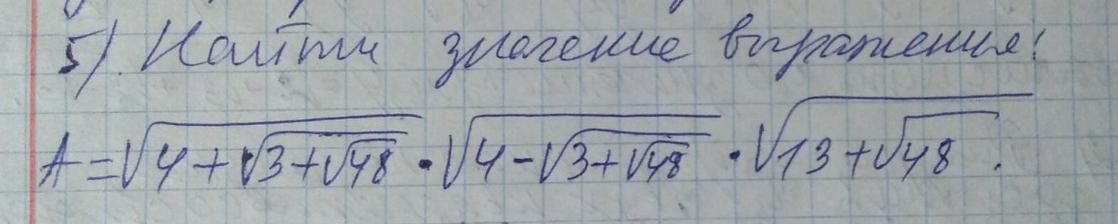 5). Найти значение выражения:
A = √(4+√(3+√48)) · √(4-√(3+√48)) · √(13+√48).